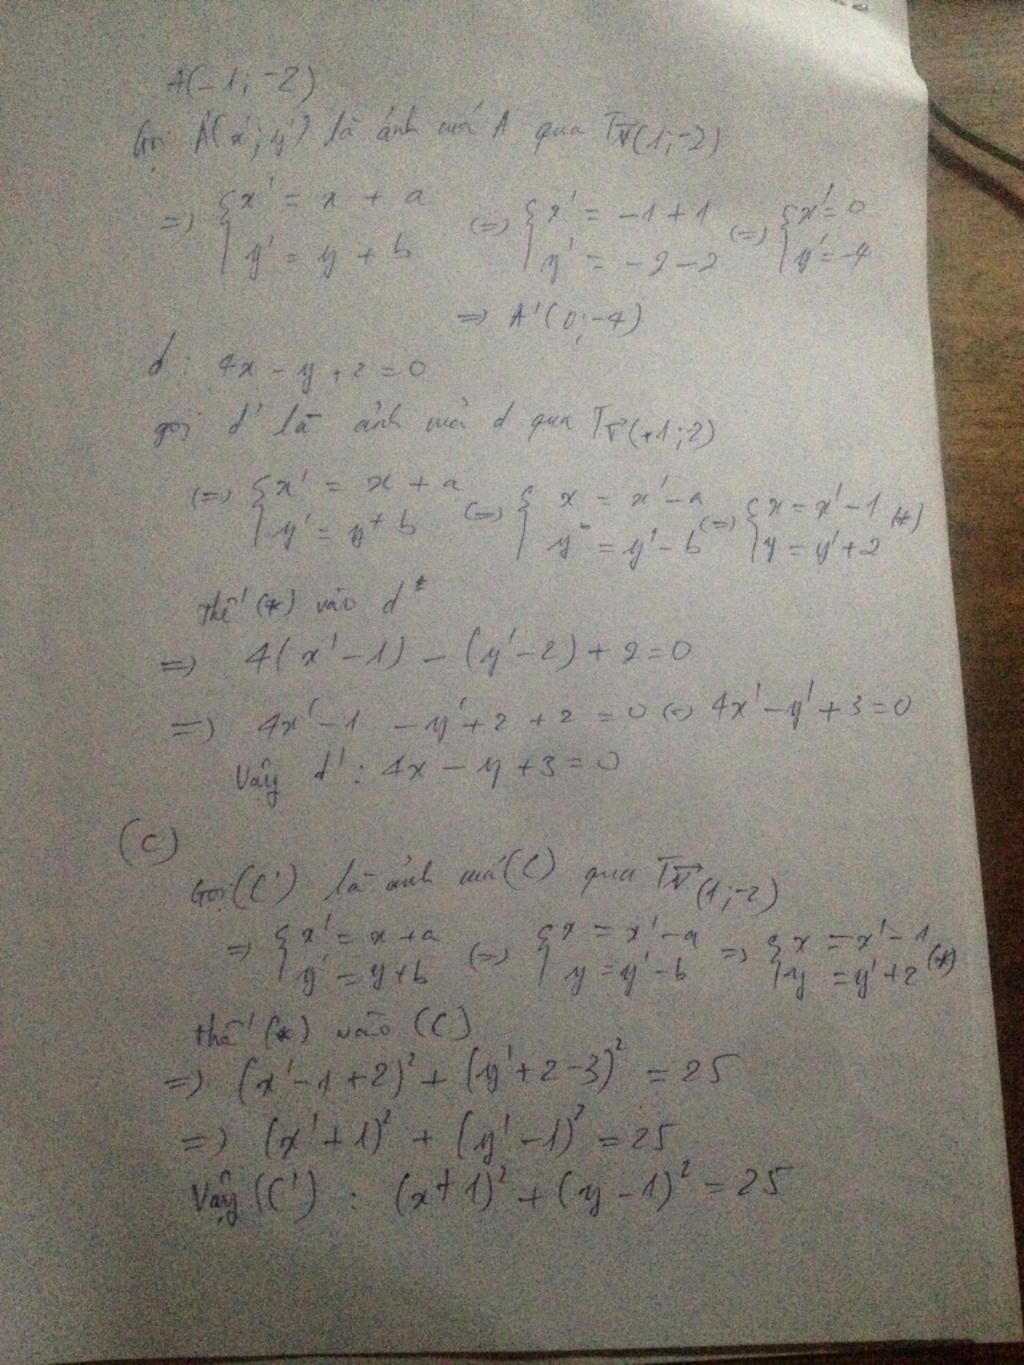 A(-1;-2)
Gọi A'(x';y') là ảnh của A qua Tv⃗(1;-2)
=> { x' = x + a ; y' = y + b <=> { x' = -1+1 ; y' = -2-2 <=> { x' = 0 ; y' = -4
=> A'(0;-4)
d: 4x - y + 2 = 0
gọi d' là ảnh của d qua Tv⃗(+1;2)
<=> { x' = x + a ; y' = y + b <=> { x = x' - a ; y = y' - b <=> { x = x' - 1 ; y = y' + 2 (*)
thế (*) vào d
=> 4(x'-1) - (y'-2) + 2 = 0
=> 4x' - 1 - y' + 2 + 2 = 0 <=> 4x' - y' + 3 = 0
Vậy d': 4x - y + 3 = 0
(C)
Gọi (C') là ảnh của (C) qua Tv⃗(1;-2)
=> { x' = x + a ; y' = y + b <=> { x = x' - a ; y = y' - b => { x = x' - 1 ; y = y' + 2 (*)
thế (*) vào (C)
=> (x'-1+2)² + (y'+2-3)² = 25
=> (x'+1)² + (y'-1)² = 25
Vậy (C') : (x+1)² + (y-1)² = 25